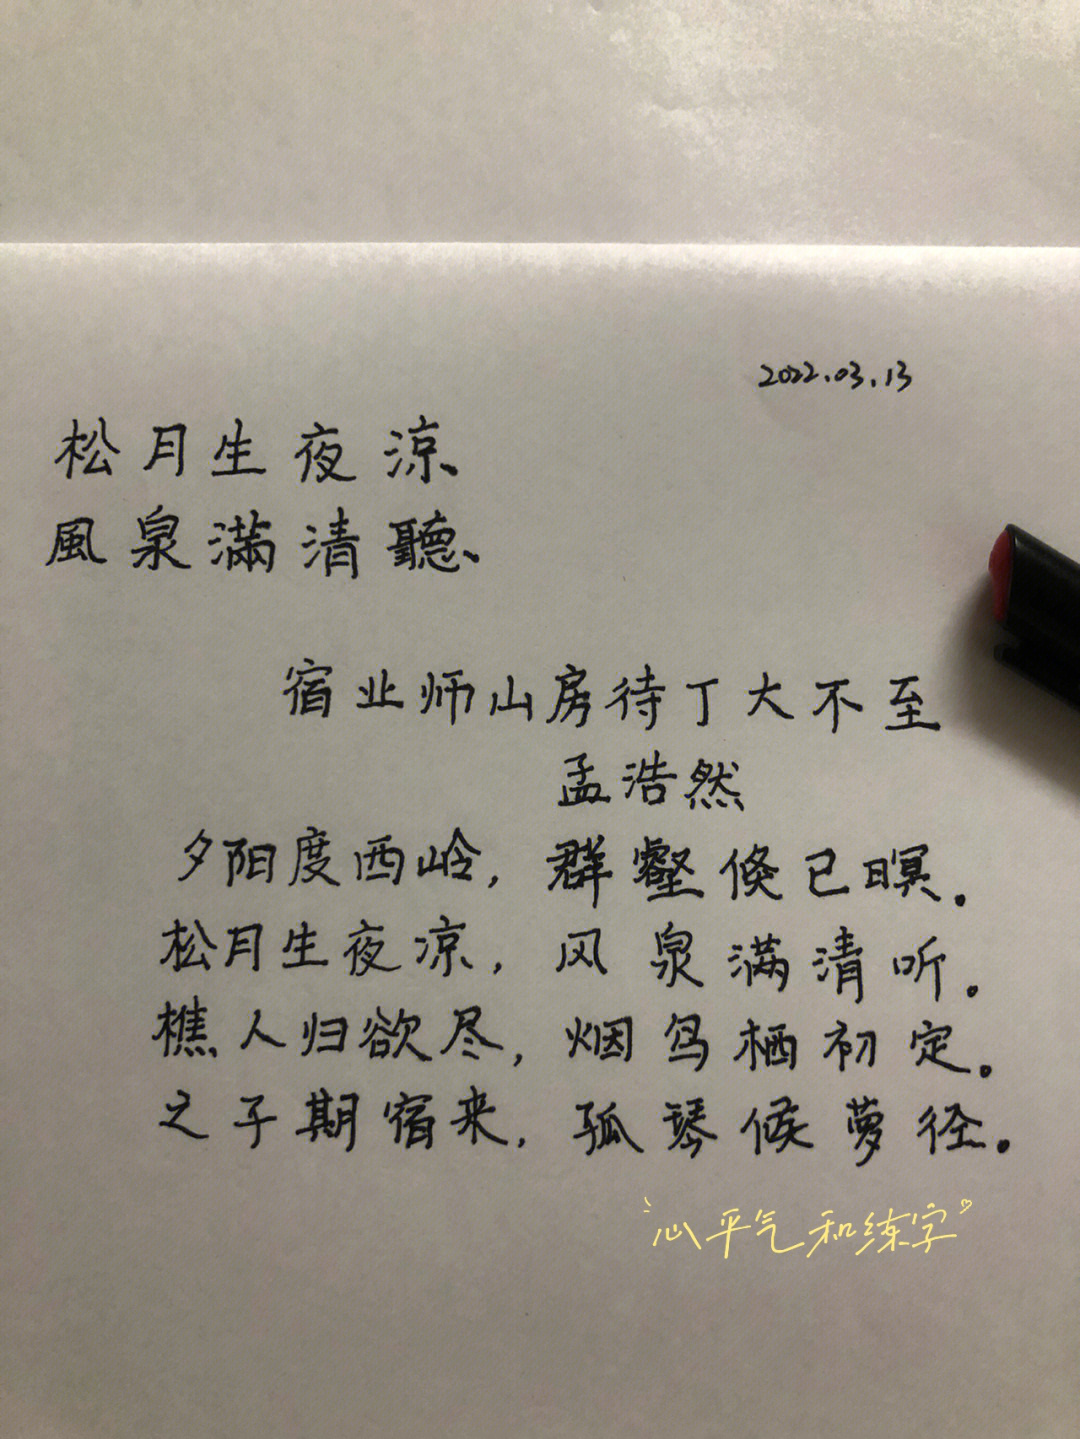 2022.03.13
松月生夜凉、
風泉滿清聽、
宿业师山房待丁大不至
孟浩然
夕阳度西岭，群壑倏已暝。
松月生夜凉，风泉满清听。
樵人归欲尽，烟鸟栖初定。
之子期宿来，孤琴候萝径。
“心平气和练字”